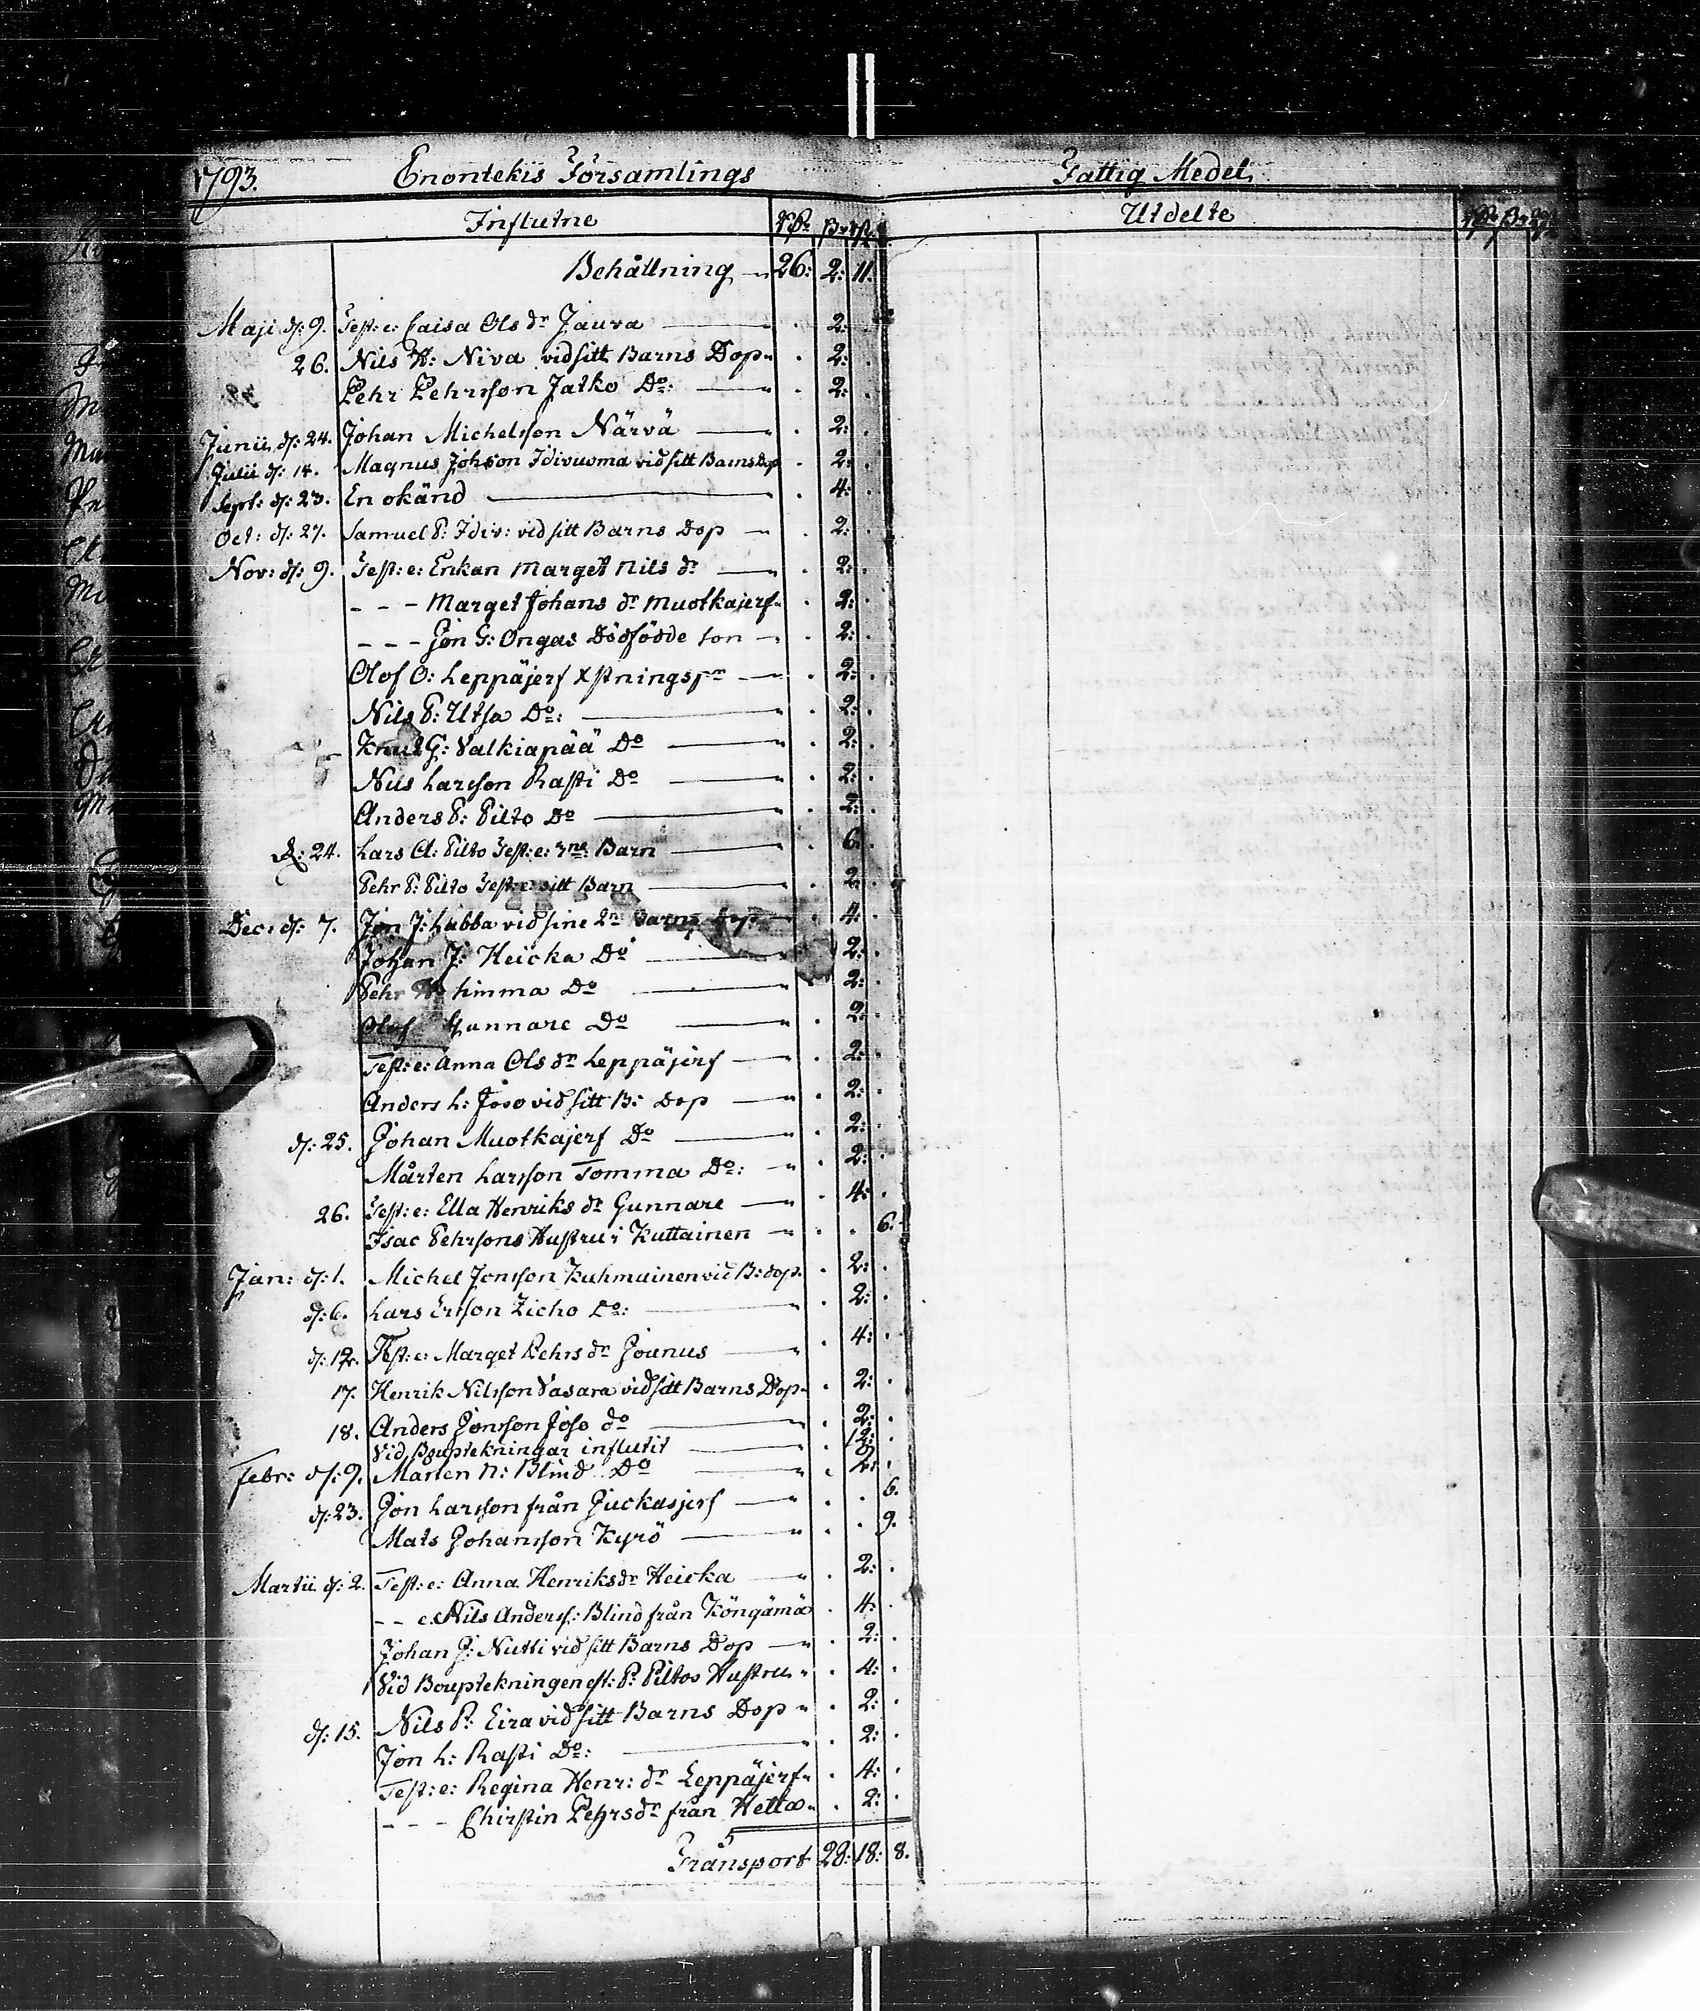 1793. Enontekis Församlings Fattig Medel
Influtne Utdelte
Behållning 26: 2: 11.
Maji d: 9. Test: e: Caisa Ols dr Jaura 2:
26. Nils H: Niva vid sitt Barns Dop 2:
Pehr Pehrsson Jatko Do: 2:
Junii d: 24. Johan Michelsson Närvä 2:
Julii d: 14. Magnus Johsson Idivuoma vid sitt Barns Dop 2:
Sept: d: 23. En okänd 4:
Oct: d: 27. Samuel P: Idiv: vid sitt Barns Dop 2:
Nov: d: 9. Test: e: Enkan Marget Nils dr 2:
- - - Marget Johans dr Muotkajerf 2:
- - - Jon G: Ongas Dödfödde son 2:
Olof O: Leppäjerf Xstningspr 2:
Nils P: Utsa Do: 2:
Knut G: Valkiapää Do 2:
Nils Larsson Rasti Do 2:
Anders P: Pilto Do 2:
d: 24. Lars A: Pilto Test: e: 3ne Barn 6.
Pehr P: Pilto Test: e: sitt Barn 2.
Dec: d: 7. Jon J: Labba vid sine 2n Barns Dop 4:
Johan J: Heicka Do 2:
Pehr Kimma Do 2:
Olof Gunnare Do 2:
Test: e: Anna Ols dr Leppäjerf 2:
Anders L: Joso vid sitt B: Dop 2:
d: 25. Johan Muotkajerf Do 2:
Mårten Larsson Tomma Do: 2:
26. Test: e: Ella Henriks dr Gunnare 4:
Isac Pehrsons Hustru i Kuttainen 6.
Jan: d: 1. Michel Jonsson Kuhmuinen vid B: dop. 2:
d: 6. Lars Ersson Zicho Do: 2:
d: 12. Test: e: Marget Pehrs dr Jounus 4:
17. Henrik Nilsson Vasara vid sitt Barns Dop 2:
18. Anders Jonsson Joso do 2:
Vid Bouptekningar influtit 12:
Febr: d: 9. Marten N: Blind Do 2:
d: 23. Jon Larsson från Juckasjerf 6.
Mats Johansson Kyrö 9.
Martii d: 2. Test: e: Anna Henriksdr Heicka 2:
- - e: Nils Anderss: Blind från Köngämä 4:
Johan J: Nutti vid sitt Barns Dop 2:
Vid Bouptekningen eft: P: Piltos Hustru 4:
d: 15. Nils P: Eira vid sitt Barns Dop 2:
Jon L: Rasti Do: 2:
Test: e: Regina Henr: dr Leppäjerf 4:
- - - Chirstin Pehrsdr från Hetta 2:
Transport 28: 18: 8.